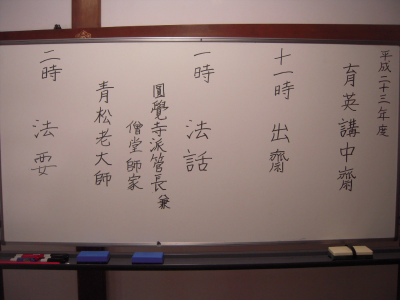 平成二十三年度
育英講中齋
十一時 出齋
一時 法話
圓覺寺派管長 兼
僧堂師家
青松老大師
二時 法要